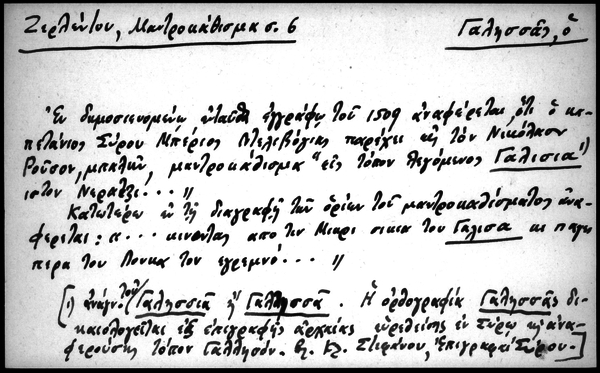 Ζερλέντου, Μαντροκάθισμα σ. 6
Γαλησσᾶς, ὁ
Ἐν δημοσιευομένῳ ἐνταῦθα ἐγγράφῳ τοῦ 1509 ἀναφέρεται, ὅτι ὁ κα-
πετάνιος Σύρου Μπέριος Ντελιβόγιας παρέχει εἰς τὸν Νικόλαον
Ροῦσον, μαντροκάθισμα "εἰς τόπον λεγόμενος Γαλισια 1)
ιστον Νερατζι... "
Κατωτέρω ἐν τῇ διαγραφῇ τῶν ὁρίων τοῦ μαντροκαθίσματος ἀνα-
φέρεται: "... κινοντας απο την σικια του Γαλισα κε παγι
περα του Πονκα τον εγρεμνό... "
[1) ἀνάγν. τοῦ Γαλησσιᾶ ἢ Γαλλησσᾶ. Ἡ ὀρθογραφία Γαλησσᾶς δι-
καιολογεῖται ἐξ ἐπιγραφῆς ἀρχαίας εὑρεθείσης ἐν Σύρῳ κ' ἀνα-
φερούσης τόπον Γαλλησόν. βλ. Κλ. Στεφάνου, Ἐπιγραφαὶ Σύρου.]